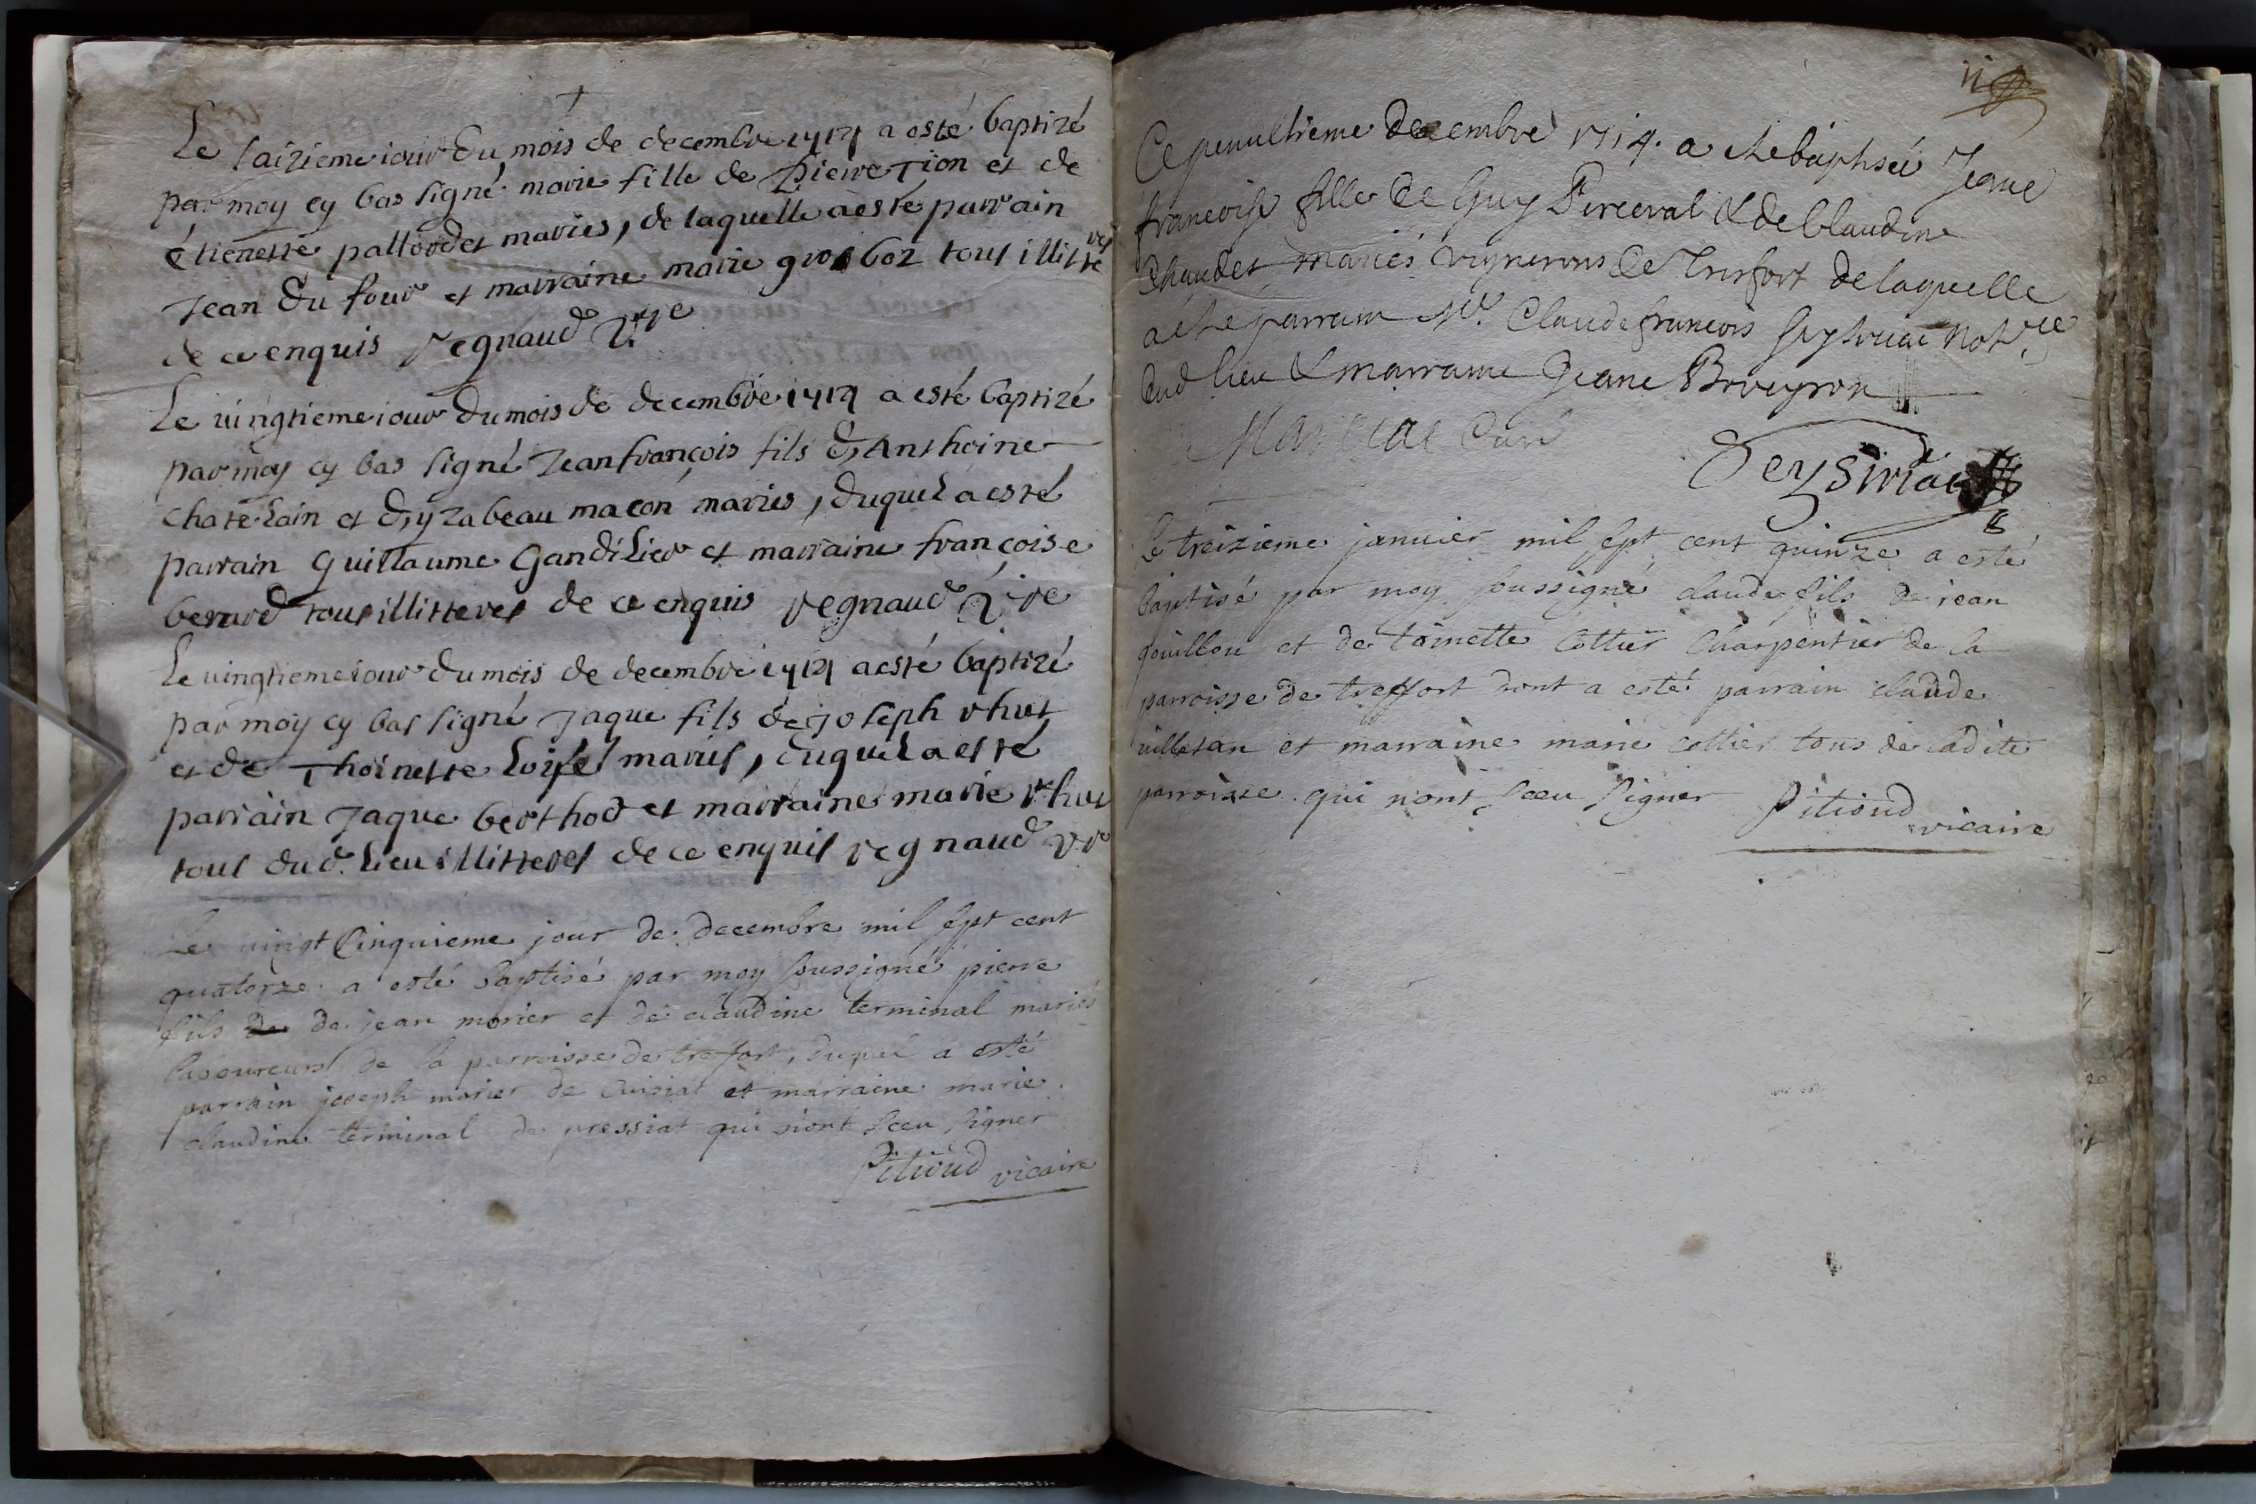 Le saizieme iour du mois de decembre 1714 a esté baptizé
par moy cy bas signé marie fille de Pierre Tion et de
étienette pallordet mariés, de laquelle a esté parrain
Jean Du four et marraine marie grosboz tous illitres
de ce enquis regnaud vre
Le vingtieme iour du mois de decembre 1714 a esté baptizé
par moy cy bas signé Jean françois fils d'Anthoine
chatelain et d'yzabeau macon mariés, duquel a esté
parrain guillaume Gandilier et marraine françoise
berard tous illitteres de ce enquis regnaud vre
Le vingtieme iour du mois de decembre 1714 a esté baptizé
par moy cy bas signé Jaque fils de joseph
et de Thoinette mariés, duquel a esté
parrain Jaque berthod et marraine marie
tous dud. lieu illitteres de ce enquis regnaud vr
Le vingt Cinquieme jour de decembre mil sept cent
quatorze a esté baptisé par moy soussigné pierre
fils de de jean morier et de claudine terminal mariés
laboureurs de la parroisse de trefort, duquel a esté
parrain joseph morier de Cuisiat et marraine marie
claudine terminal de pressiat qui n'ont sceu signer
Pitioud vicaire
11
Ce penultieme decembre 1714. a eté baptisée Jeane
francoise fille de Guy Perceval & de Claudine
Chaudet mariés vignerons de Trefort de laquelle
a eté parrain Mr. Claude francois Notre
dud lieu & marraine Jeane Broveyron
Curé
Le treizieme janvier mil sept cent quinze a esté
baptisé par moy soussigné claude fils de jean
gouillon et de toinette Cottier Charpentier de la
parroisse de treffort dont a esté parrain claude
villetan et marraine marie cottier tous de ladite
parroisse qui n'ont sceu signer Pitioud
vicaire